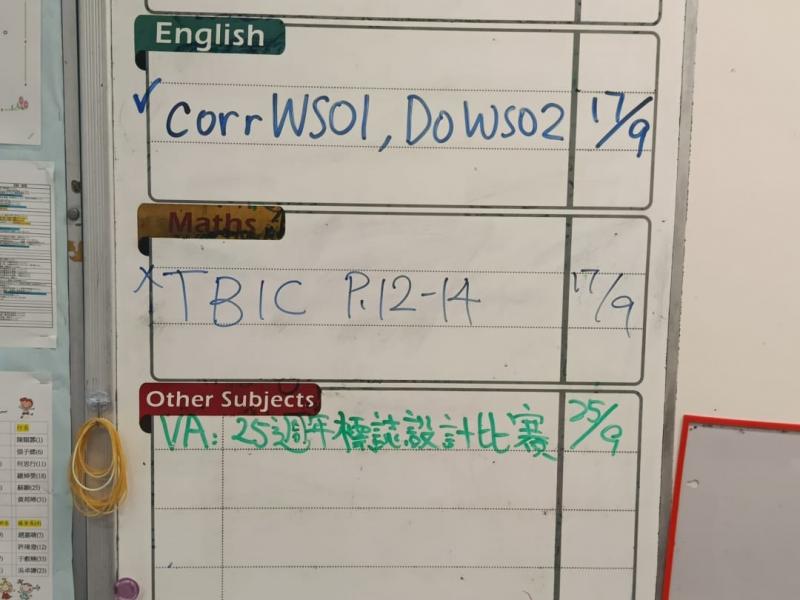 English
✓ Corr WS01, Do WS02 17/9
Maths
x TB1C P.12-14 17/9
Other Subjects
VA: 25週年標誌設計比賽 25/9